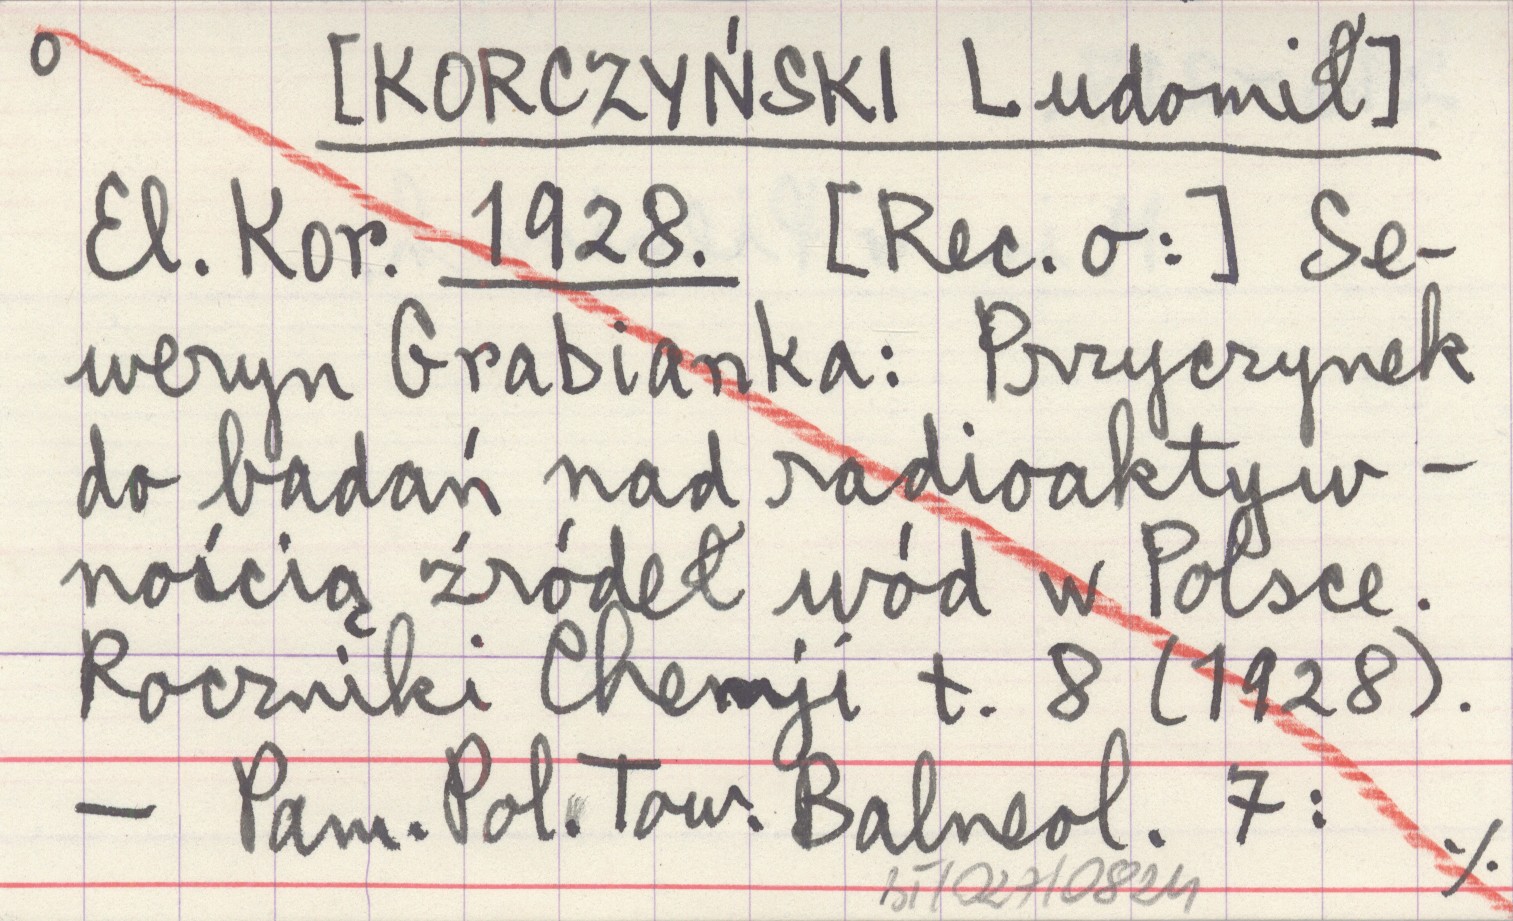 o [KORCZYŃSKI Ludomił]
El. Kor. 1928. [Rec. o:] Se-
weryn Grabianka: Przyczynek
do badań nad radioaktyw-
nością źródeł wód w Polsce.
Roczniki Chemji t. 8 (1928).
— Pam. Pol. Tow. Balneol. 7:
./.